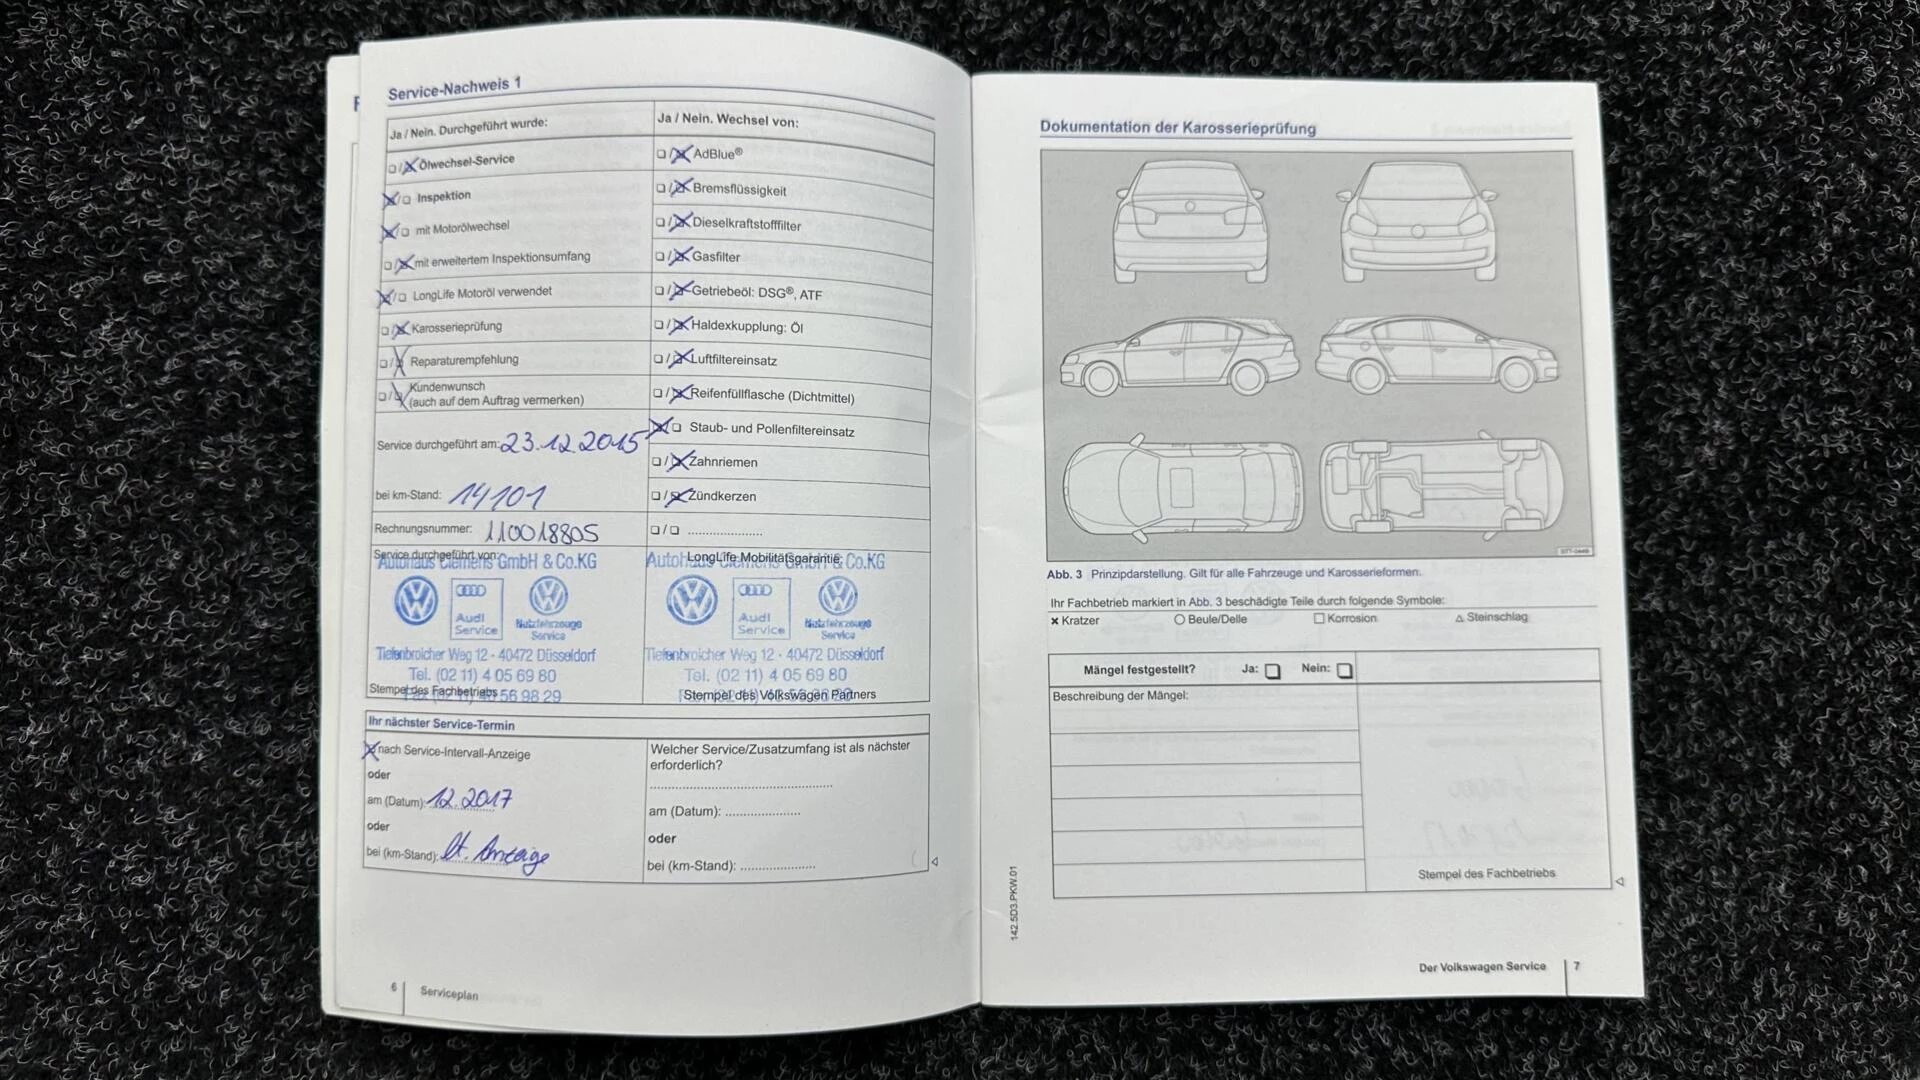 Service-Nachweis 1
Ja / Nein. Durchgeführt wurde:
❏ / ❏ Ölwechsel-Service
❏ / ❏ Inspektion
❏ / ❏ mit Motorölwechsel
❏ / ❏ mit erweitertem Inspektionsumfang
❏ / ❏ LongLife Motoröl verwendet
❏ / ❏ Karosserieprüfung
❏ / ❏ Reparaturempfehlung
❏ / ❏ Kundenwunsch
(auch auf dem Auftrag vermerken)
Service durchgeführt am: 23.12.2015
bei km-Stand: 14101
Rechnungsnummer: 110018805
Service durchgeführt von:
Autohaus Clemens GmbH & Co.KG
Audi
Service
Nutzfahrzeuge
Service
Tiefenbroicher Weg 12 · 40472 Düsseldorf
Tel. (02 11) 4 05 69 80
Stempel des Fachbetriebs
Ja / Nein. Wechsel von:
❏ / ❏ AdBlue®
❏ / ❏ Bremsflüssigkeit
❏ / ❏ Dieselkraftstofffilter
❏ / ❏ Gasfilter
❏ / ❏ Getriebeöl: DSG®, ATF
❏ / ❏ Haldexkupplung: Öl
❏ / ❏ Luftfiltereinsatz
❏ / ❏ Reifenfüllflasche (Dichtmittel)
❏ / ❏ Staub- und Pollenfiltereinsatz
❏ / ❏ Zahnriemen
❏ / ❏ Zündkerzen
❏ / ❏ .....................
LongLife Mobilitätsgarantie:
Autohaus Clemens GmbH & Co.KG
Audi
Service
Nutzfahrzeuge
Service
Tiefenbroicher Weg 12 · 40472 Düsseldorf
Tel. (02 11) 4 05 69 80
Stempel des Volkswagen Partners
Ihr nächster Service-Termin
nach Service-Intervall-Anzeige
oder
am (Datum): 12.2017
oder
bei (km-Stand): lt. Anzeige
Welcher Service/Zusatzumfang ist als nächster
erforderlich?
am (Datum): .....................
oder
bei (km-Stand): .....................
6 Serviceplan
Dokumentation der Karosserieprüfung
Abb. 3 Prinzipdarstellung. Gilt für alle Fahrzeuge und Karosserieformen.
Ihr Fachbetrieb markiert in Abb. 3 beschädigte Teile durch folgende Symbole:
× Kratzer ○ Beule/Delle □ Korrosion △ Steinschlag
Mängel festgestellt? Ja: ❏ Nein: ❏
Beschreibung der Mängel:
Stempel des Fachbetriebs
142.5D3.PKW.01
Der Volkswagen Service 7